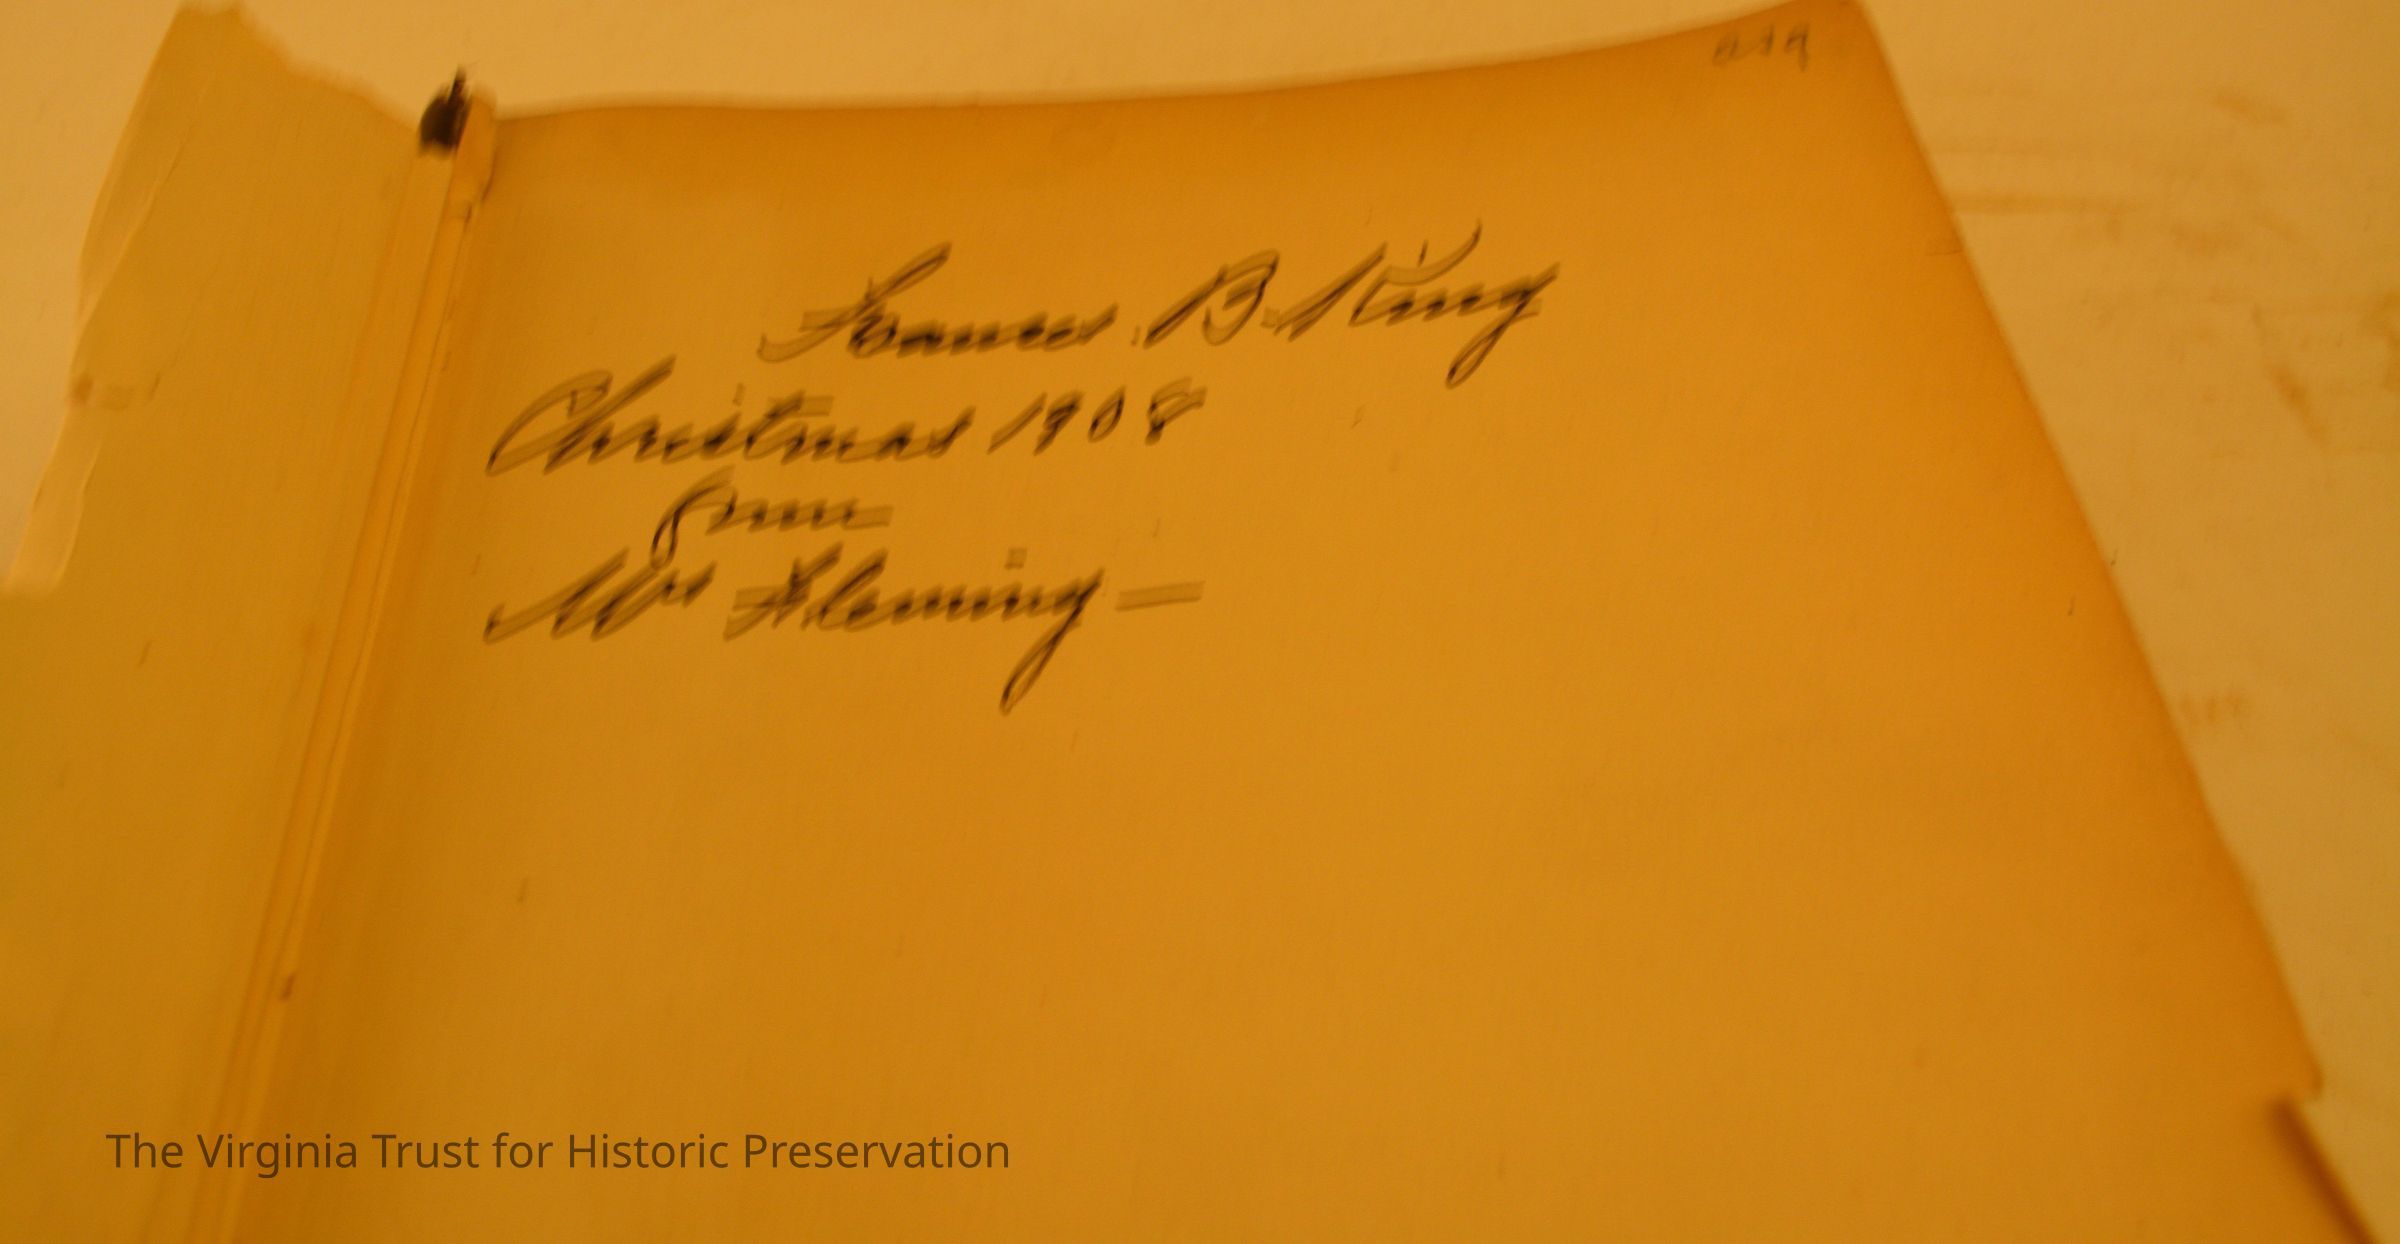 Frances B. King
Christmas 1908
from
Mrs Fleming —
The Virginia Trust for Historic Preservation